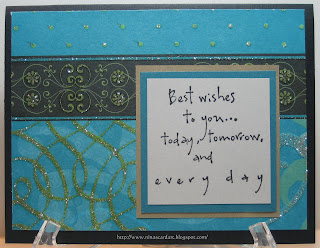 Best wishes
to you...
today, tomorrow,
and
every day
http://www.ninascardart.blogspot.com/